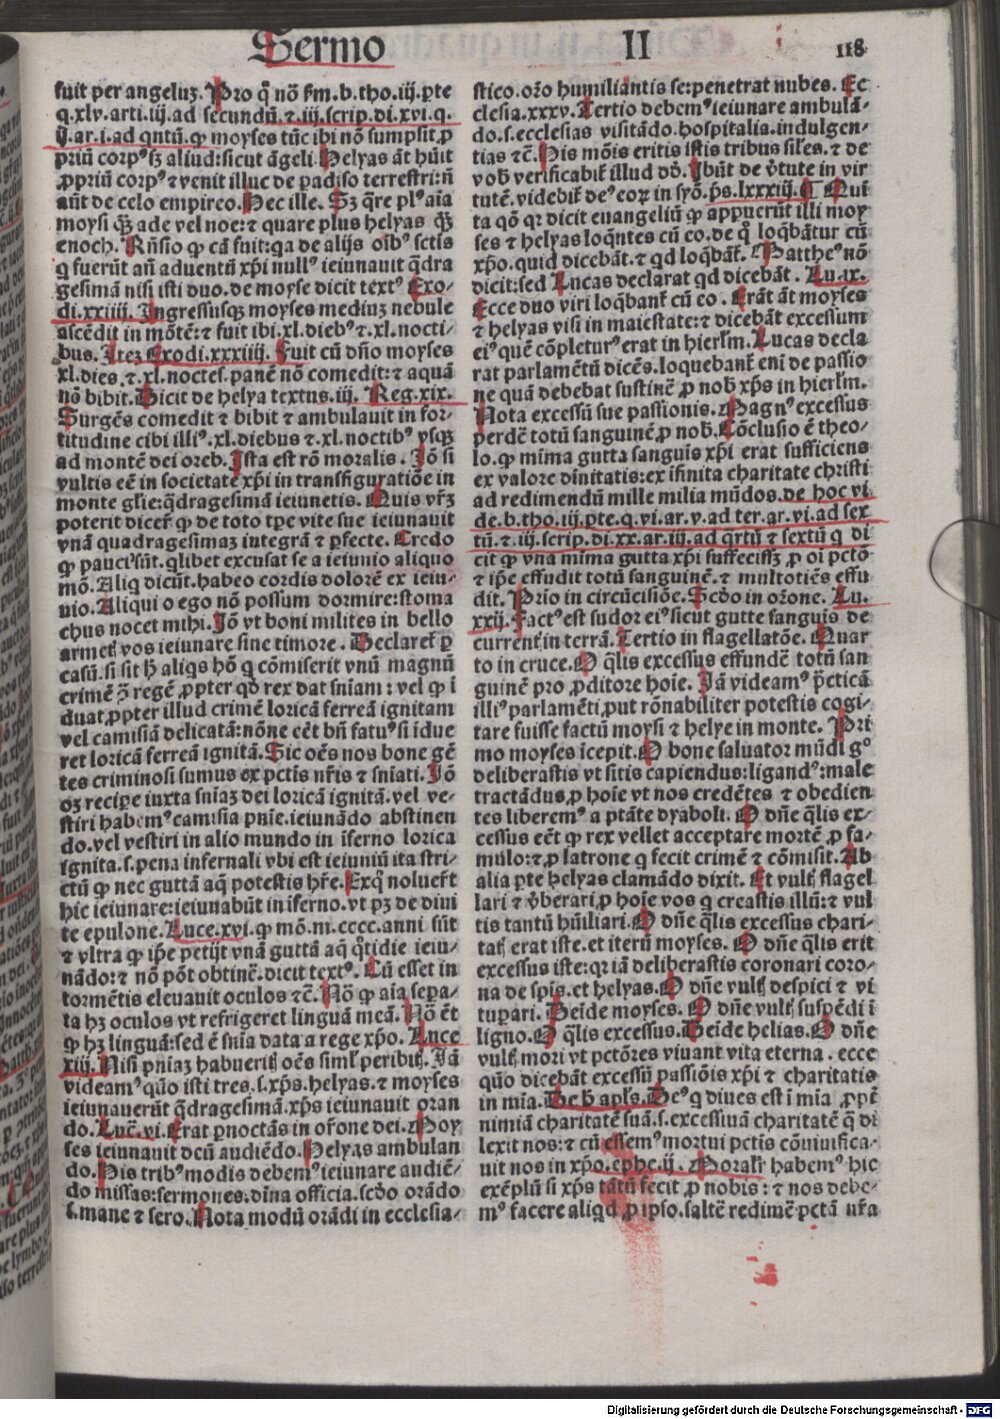 Sermo II 118
fuit per angeluʒ. Pro q̄ nō ſm.b.tho.iij.pte
q.xlv.arti.iij.ad ſecundū ⁊.iij.ſcrip.di.xvi.q.
ij.ar.i.ad qntū.qͥ moyſes tūc ibi nō ſumpſit ꝓ
priū corpꝰ ſʒ aliud:ſicut āgeli. Helyas āt hūit
ꝓpriū corpꝰ ⁊ venit illuc de padiſo terreſtri:ñ
aūt de celo empireo. Hec ille. Sʒ q̄re plꝰ aīa
moyſi q̄ʒ ade vel noe:⁊ quare plus helyas q̄ʒ
enoch. Rñſio qͥ cā fuit:qa de alijs oībꝰ ſctis
q fuerūt añ aduentū xp̄i nullꝰ ieiunauit q̄dra
geſimā niſi iſti duo. de moyſe dicit textꝰ Exo⸗
di.xxiiij. Ingreſſuſqʒ moyſes mediuʒ nebule
aſcēdit in mōtē:⁊ fuit ibi.xl.diebꝰ ⁊.xl.nocti⸗
bus. Iteʒ Exodi.xxxiiij. Fuit cū dño moyſes
xl.dies.⁊.xl.noctes.panē nō comedit:⁊ aquā
nō bibit. Dicit de helya textus.iij. Reg.xix.
Surgēs comedit ⁊ bibit ⁊ ambulauit in for⸗
titudine cibi illiꝰ.xl.diebus ⁊.xl.noctibꝰ vſqʒ
ad montē dei oreb. Iſta eſt rō moralis. Jō ſi
vultis eē in ſocietate xp̄i in transfiguratiōe in
monte glīe:q̄drageſimā ieiunetis. Quis vr̄ʒ
poterit dicer̄ qͥ de toto tp̄e vite ſue ieiunauit
vnā quadrageſimaʒ integrā ⁊ pfecte. Credo
qͥ pauciſſūt.qlibet excuſat ſe a ieiunio aliquo
mō. Aliq dicūt.habeo cordis dolorē ex ieiu⸗
nio. Aliqui o ego nō poſſum dormire:ſtoma
chus nocet mihi. Jō vt boni milites in bello
armet̄ vos ieiunare ſine timore. Declaret̄ p
caſū.ſi ſit h̄ aliqs hō q cōmiſerit vnū magnū
crimē ɔ̄ regē ꝓpter qd̄ rex dat ſniam: vel qͥ ī
duat ꝓpter illud crimē loricā ferreā ignitam
vel camiſiā delicatā:nōne eēt bñ fatuꝰ ſi īdue
ret loricā ferreā ignitā. Sic oēs nos bone gē
tes criminoſi ſumus ex pctis nr̄is ⁊ ſniati. Jō
oʒ recipe iuxta ſniaʒ dei loricā ignitā.vel ve⸗
ſtiri habemꝰ camiſia pnīe.ieiunādo abſtinen
do.vel veſtiri in alio mundo in īferno lorica
ignita.ſ.pena infernali vbi eſt ieiuniū ita ſtri⸗
ctū qͥ nec guttā aq̄ poteſtis hr̄e. Exq̄ noluer̄t
hic ieiunare:ieiunabūt in īferno.vt pʒ de diui
te epulone. Luce.xvi.qͥ mō.m.cccc.anni ſūt
⁊ vltra qͥ ip̄e petijt vnā guttā aq̄ q̄tidie ieiu⸗
nādo:⁊ nō pōt obtinē.dicit textꝰ. Cū eſſet in
tormētis eleuauit oculos ⁊c̄. Nō qͥ aīa ſepa⸗
ta hʒ oculos vt refrigeret linguā meā. Nō ēt
qͥ hʒ linguā:ſed ē ſnia data a rege xp̄o. Luce
xiij. Niſi pniaʒ habuerit̄ oēs ſiml̄ peribit̄. Jā
videamꝰ quō iſti tres.ſ.xp̄s.helyas.⁊ moyſes
ieiunauerūt q̄drageſimā.xp̄s ieiunauit oran
do. Luc̄.vi. Erat pnoctās in or̄one dei. Moy
ſes ieiunauit deū audiēdo. Helyas ambulan
do. His tribꝰ modis debemꝰ ieiunare audiē⸗
do miſſas:ſermones.diīna officia.ſcd̄o orādo
ſ.mane ⁊ ſero. Nota modū orādi in eccleſia⸗
ſtico.or̄o humiliantis ſe:penetrat nubes. Ec
cleſia.xxxv. Tertio debemꝰ ieiunare ambulā⸗
do.ſ.eccleſias viſitādo.hoſpitalia.indulgen⸗
tias ⁊c̄. His mōis eritis iſtis tribus ſiles.⁊ de
vob̄ verificabit̄ illud dō. Ibūt de v̄tute in vir
tutē.videbit̄ deꝰ eoꝝ in ſyō.p̄s.lxxxiij. ¶ Qui
ta qō qr dicit euangeliū qͥ apparuerūt illi moy
ſes ⁊ helyas loq̄ntes cū eo.de q̄ loq̄bātur cū
xp̄o.quid dicebāt.⁊ qd loq̄bāt̄. Mattheꝰ nō
dicit:ſed Lucas declarat qd dicebāt. Lu.ix.
Ecce duo viri loq̄bant̄ cū eo. Erāt āt moyſes
⁊ helyas viſi in maieſtate:⁊ dicebāt exceſſum
eiꝰ quē cōpleturꝰ erat in hierl̄m. Lucas decla
rat parlamētū dicēs.loquebant̄ eni de paſſio
ne quā debebat ſuſtinē ꝓ nob̄ xp̄s in hierl̄m.
Nota exceſſū ſue paſſionis. Magnꝰ exceſſus
perdē totū ſanguinē ꝓ nob̄. Cōcluſio ē theo⸗
lo.qͥ mīma gutta ſanguīs xp̄i erat ſufficiens
ex valore diīnitatis:ex īfinita charitate chriſti
ad redimendū mille milia mūdos.de hoc vi⸗
de.b.tho.iij.pte.q.vi.ar.v.ad ter.ar.vi.ad ſex
tū.⁊.iij.ſcrip.di.xx.ar.iij.ad q̄rtū ⁊ ſextū q di
cit qͥ vna mīma gutta xp̄i ſuffeciſſʒ ꝓ oī pctō
⁊ ip̄e effudit totū ſanguinē.⁊ multotiēs effu
dit. Prio in circūciſiōe. Scd̄o in or̄one. Lu.
xxij. Factꝰ eſt ſudor eiꝰ ſicut gutte ſanguīs de
current̄ in terrā. Tertio in flagellatōe. Quar
to in cruce. O q̄lis exceſſus effundē totū ſan
guinē pro ꝓditore hoīe. Jā videamꝰ p̄cticā
illiꝰ parlamēti ꝓut rōnabiliter poteſtis cogi⸗
tare fuiſſe factū moyſi ⁊ helye in monte. Pri
mo moyſes īcepit. O bone ſaluator mūdi gͦ
deliberaſtis vt ſitis capiendus:ligandꝰ:male
tractādus ꝓ hoīe vt nos credētes ⁊ obedien
tes liberemꝰ a ptāte dyaboli. O dn̄e q̄lis ex⸗
ceſſus eēt qͥ rex vellet acceptare mortē ꝓ fa⸗
mulo:⁊ ꝓ latrone q fecit crimē ⁊ cōmiſit. Ab
alia pte helyas clamādo dixit. Et vult̄ flagel
lari ⁊ v̄berari ꝓ hoīe vos q creaſtis illū:⁊ vul
tis tantū hūiliari. O dn̄e q̄lis exceſſus chari⸗
tat̄ erat iſte.et iterū moyſes. O dn̄e q̄lis erit
exceſſus iſte:qr iā deliberaſtis coronari coro⸗
na de ſpīs.et helyas. O dn̄e vult̄ deſpici ⁊ vi
tuperari. Deīde moyſes. O dn̄e vult̄ ſuſpēdi ī
ligno. O q̄lis exceſſus. Deīde helias. O dn̄e
vult̄ mori vt pctōres viuant vita eterna. ecce
quō dicebāt exceſſū paſſiōis xp̄i ⁊ charitatis
in mīa. De h̄ apl̄s. Deꝰ q diues eſt ī mīa ꝓpt̄
nimiā charitatē ſuā.ſ.exceſſiuā charitatē q̄ di
lexit nos:⁊ cū eſſemꝰ mortui pctis cōuiuifica⸗
uit nos in xp̄o.ephe.ij. Moralit̄ habemꝰ hic
exēplū ſi xp̄s tātū fecit ꝓ nobis:⁊ nos debe⸗
mꝰ facere aliqd ꝓ ipſo.ſaltē redimē pctā nr̄a
Digitalisierung gefördert durch die Deutsche Forschungsgemeinschaft - DFG